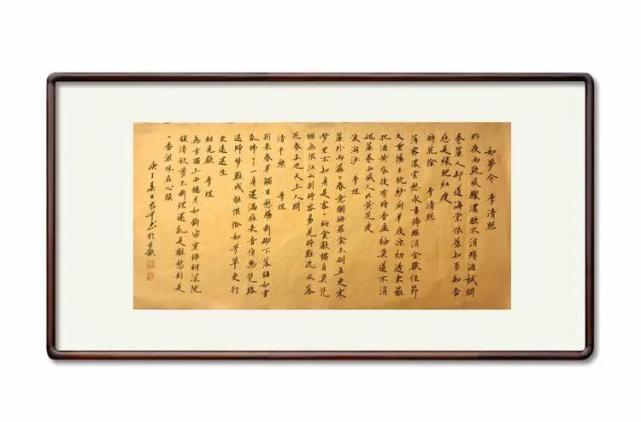 如夢令 李清照
昨夜雨疏風驟濃睡不消殘酒試問
卷簾人卻道海棠依舊知否知否
應是綠肥紅瘦
醉花陰 李清照
薄霧濃雲愁永晝瑞腦消金獸佳節
又重陽玉枕紗廚半夜涼初透東籬
把酒黃昏後有暗香盈袖莫道不消
魂簾卷西風人比黃花瘦
浪淘沙 李煜
簾外雨潺々春意闌珊羅衾不耐五更寒
夢里不知身是客一晌貪歡獨自莫憑
欄無限江山別時容易見時難流水落
花春去也天上人間
清平樂 李煜
別來春半觸目愁腸斷砌下落梅如雪
亂拂了一身還滿雁來音信無憑路
遙歸夢難成離恨恰如芳草更行
更遠還生
相見歡 李煜
無言獨上西樓月如鉤寂寞梧桐深院
鎖清秋剪不斷理還亂是離愁別是
一番滋味在心頭
春日